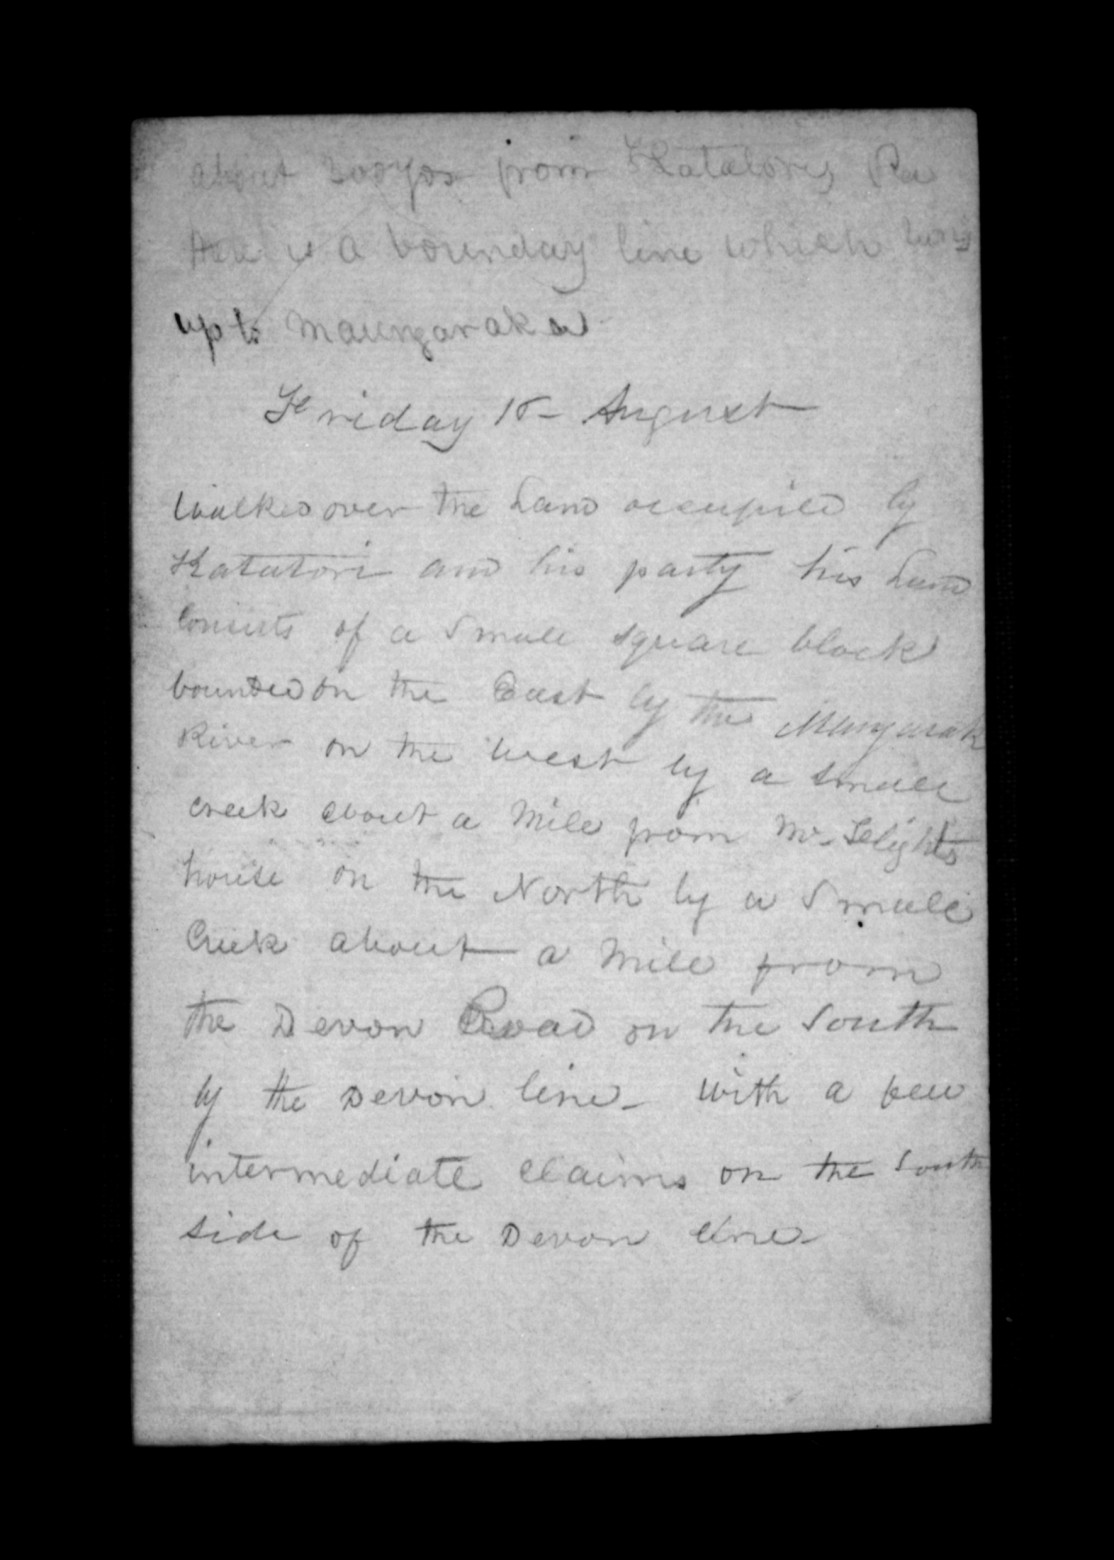 about 200 yds from Katatoris Pa
there is a bounday line which
up to Maungaraka
Friday 18 - August
Walked over the Land occupied by
Katatori and his party his Land
Consists of a Small square block
bounded on the East by the Mangarak
River on the West by a small
creek about a Mile from Mr. Flights
house on the North by a Small
Creek about a Mile from
the Devon Road on the South
by the Devon line - With a few
intermediate Claims on the South
side of the Devon line